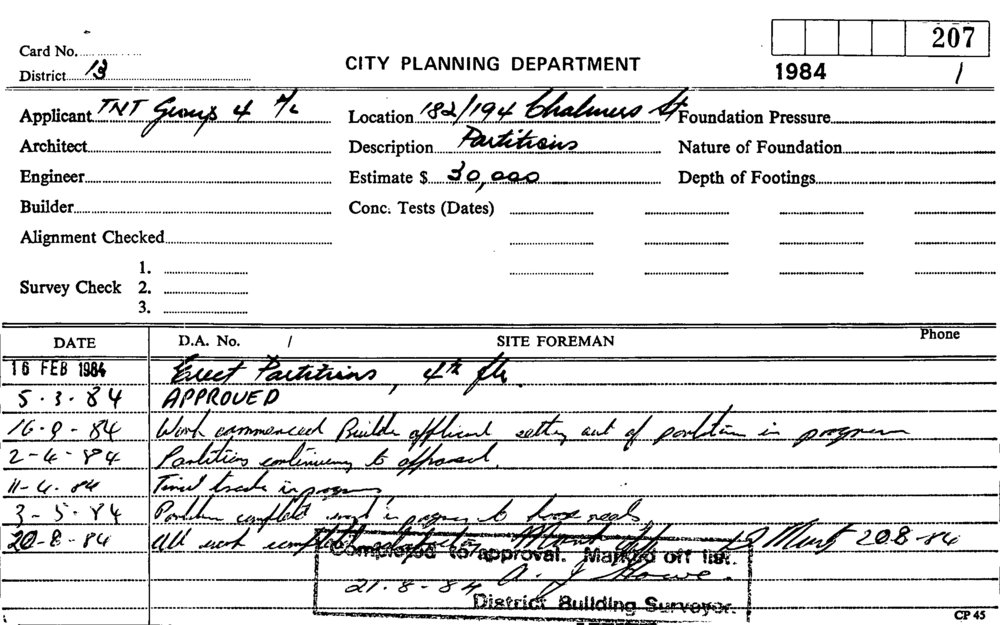 207
Card No.
CITY PLANNING DEPARTMENT
District 13
1984 /
Applicant TNT Group 4 P/L
Location 182/194 Chalmers St
Foundation Pressure
Architect
Description Partitions
Nature of Foundation
Engineer
Estimate $ 30,000
Depth of Footings
Builder
Conc. Tests (Dates)
Alignment Checked
Survey Check
1.
2.
3.
DATE D.A. No. / SITE FOREMAN Phone
16 FEB 1984 Erect Partitions, 4th flr.
5.3.84 APPROVED
16-9-84 Work commenced Builder applicant setting out of partition in progress
2-4-84 Partitions continuing to approval.
11-4-84 trade in progress
3-5-84 Partition complete work in progress to
20-8-84 All work completed Mark off 20.8-84
Completed to approval. Marked off list.
21.8-84 A. J Howe.
District Building Surveyor.
CP 45